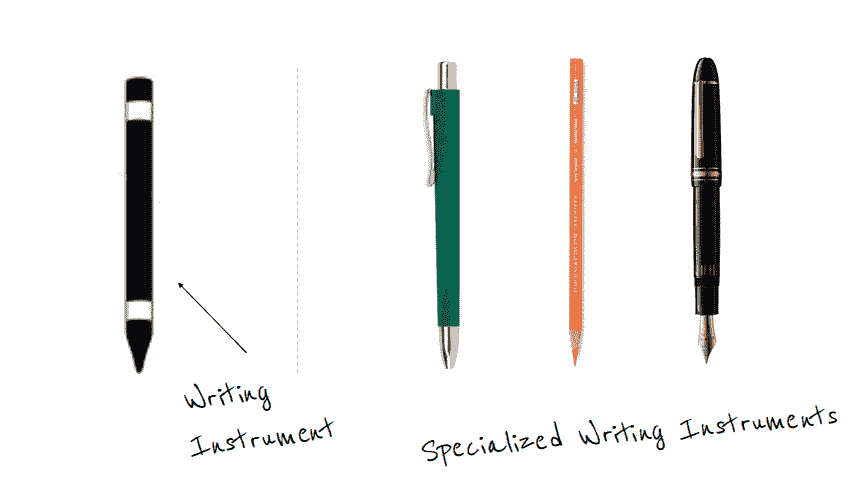 Writing
Instrument
Specialized Writing Instruments